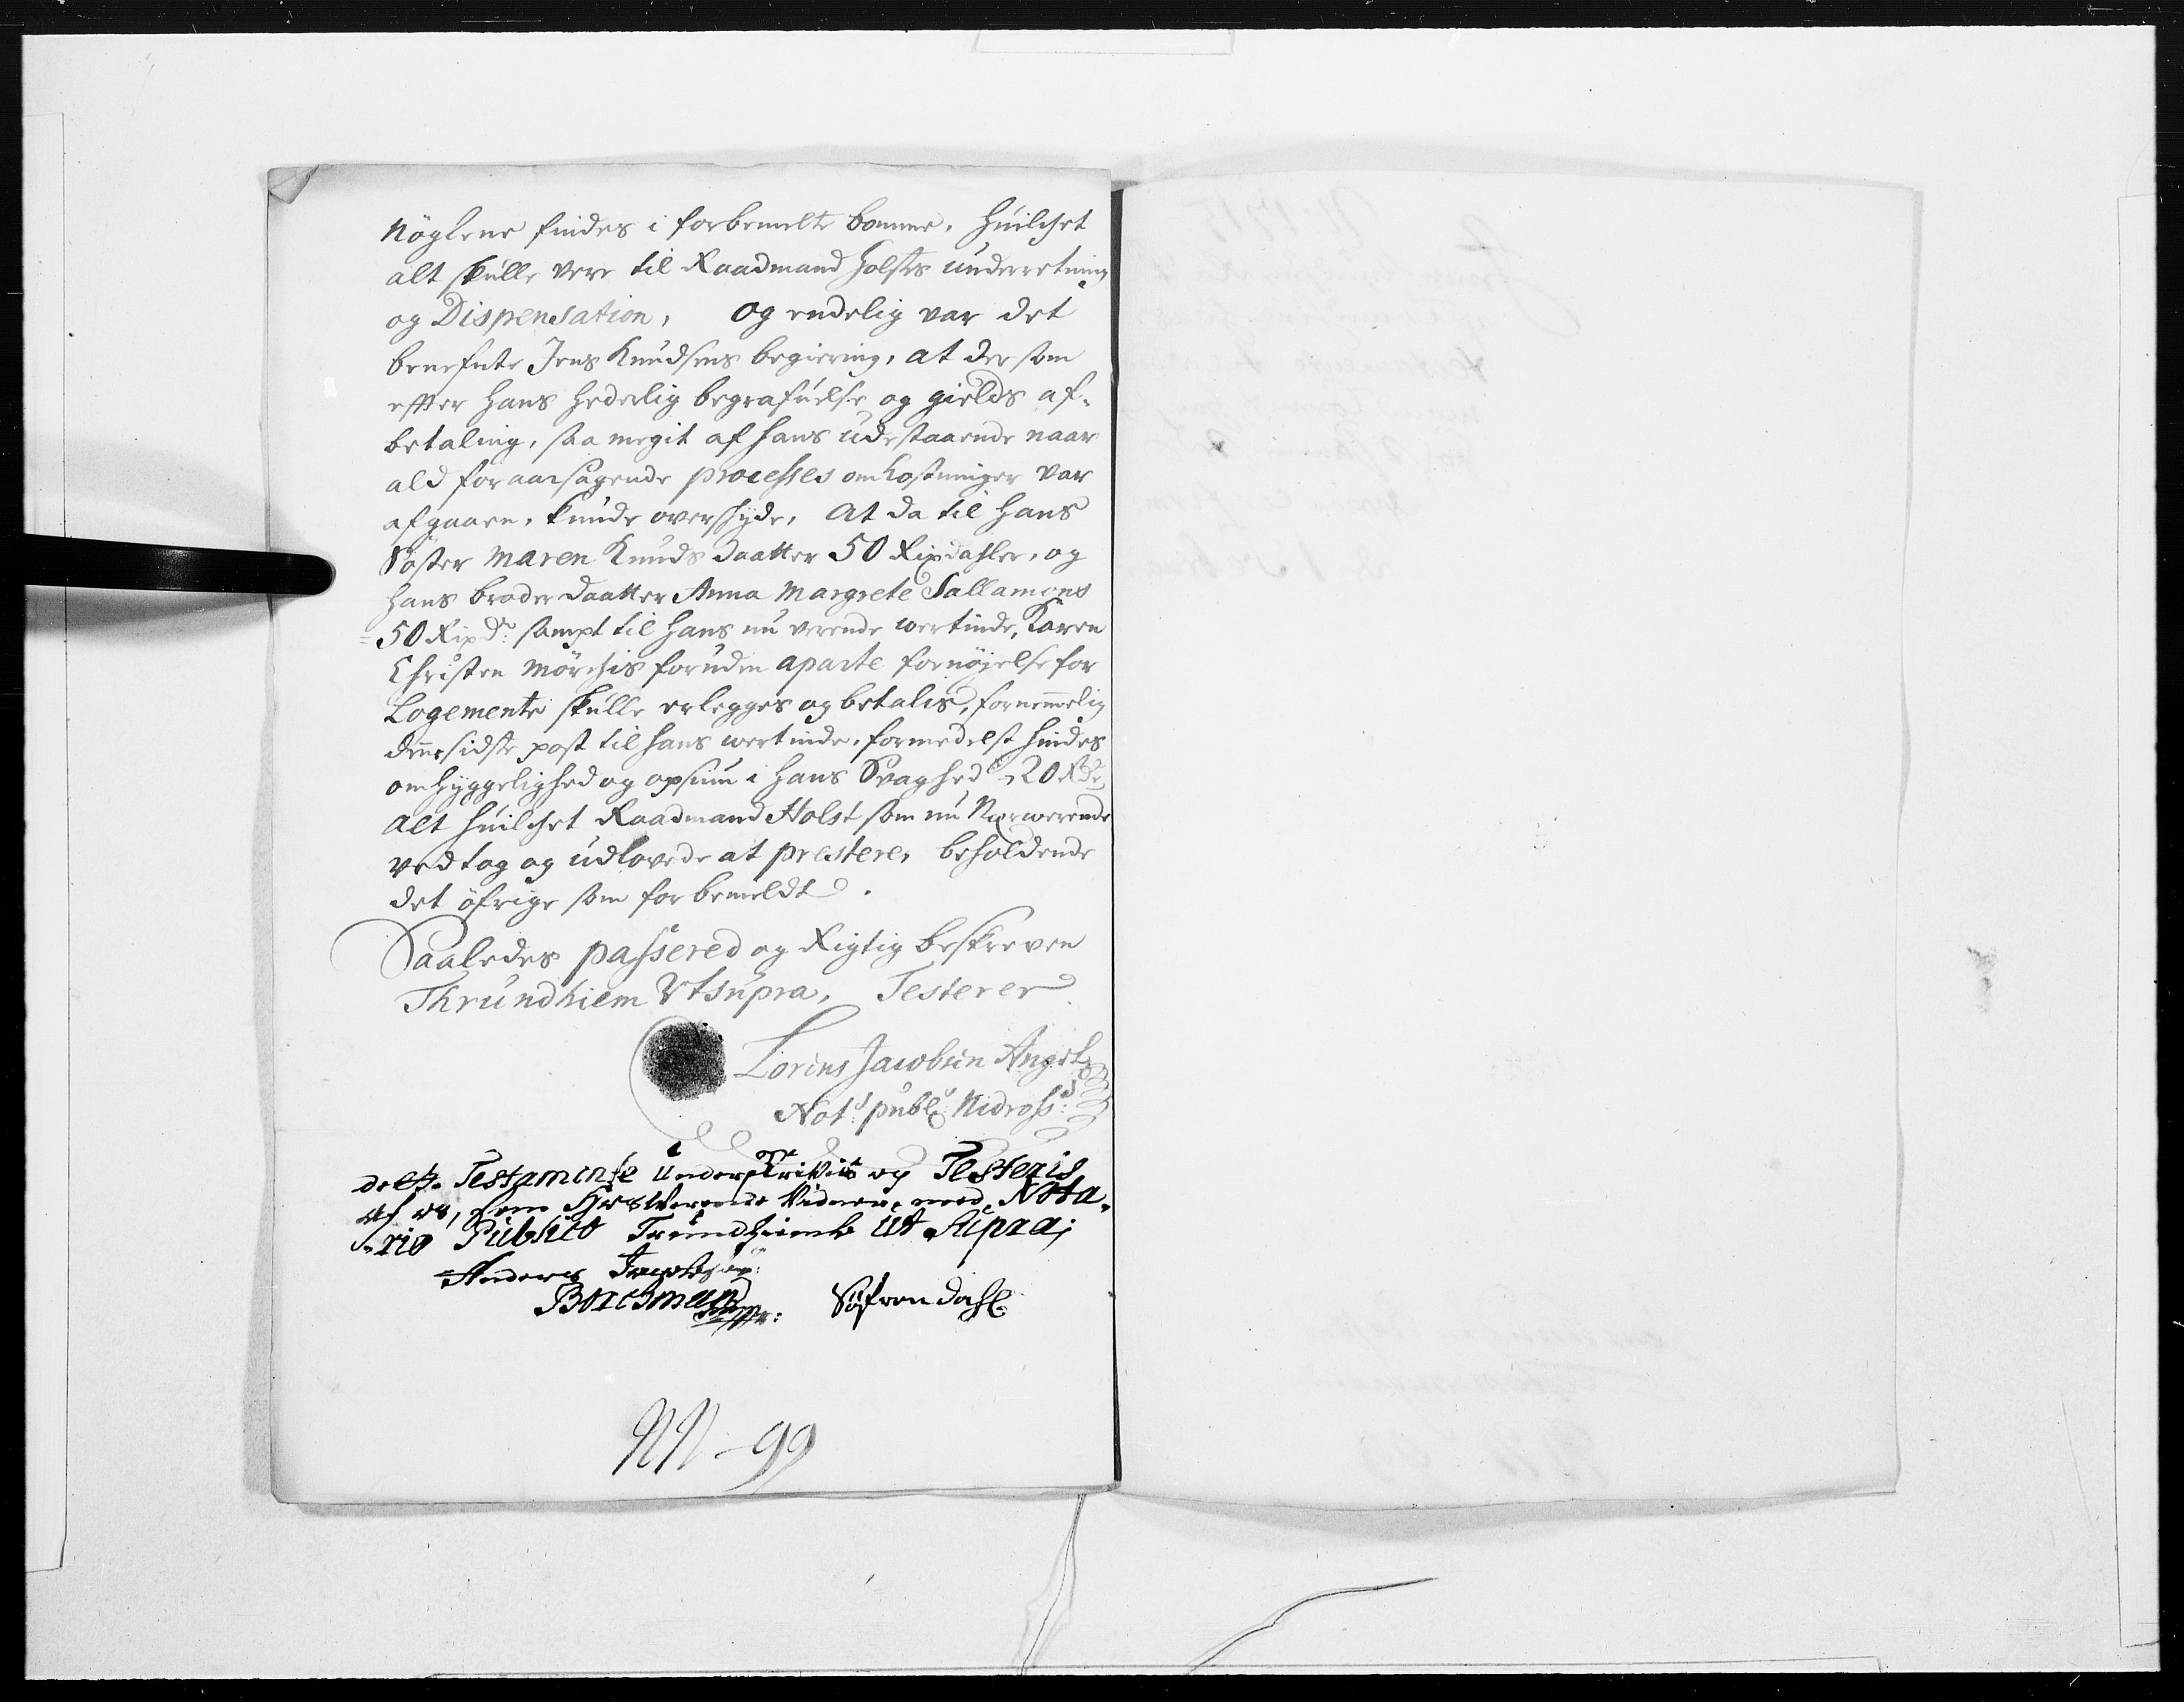 Nøglene findes i forbemelte bomme, huilchet
alt skulle vere til Raadmand Holstes underretning
og Dispensation, og endelig var det
benefnte Jens Knudsens begiering, at dersom
effter hans hederlig begrafuelse og gields af-
betaling, saa megit af hans udestaaende naar
ald foraarsagende processes omkostninger var
afgaaen, kunde overskyde, At da til hans
Søster Maren Knuds daatter 50 Rixdahler, og
hans broder daatter Anna Margrete Sallamons
50 Rixdr: sampt til hans nu verende wertinde, Karen
Christen Mørchis foruden aparte fornøjelse for
Logemente skulle erlegges og betalis, fornemmelig
denne sidste post til hans wertinde, formedelst hindes
omhyggelighed og opsiun i hans Svaghed 20 Rdr,
Alt huilchet Raadmand Holst som nu Nærwerende
vedtog og udlovede at prestere, beholdende
det øfrige som forbemeldt.
Saaledes passered og Rigtig beskreven
Thrundhiem Utsupra, Testerer
Lorens Jacobsen Angel
Nots: publ: Nidross:
dette Testamente Underskrivis og Testeris
af os, som Hosverende Vidner, med Nota-
rio Publico Trundhiemb Ut Supra;
Anders Jacobsøn
Borchman Søfren Dahl
NN-99